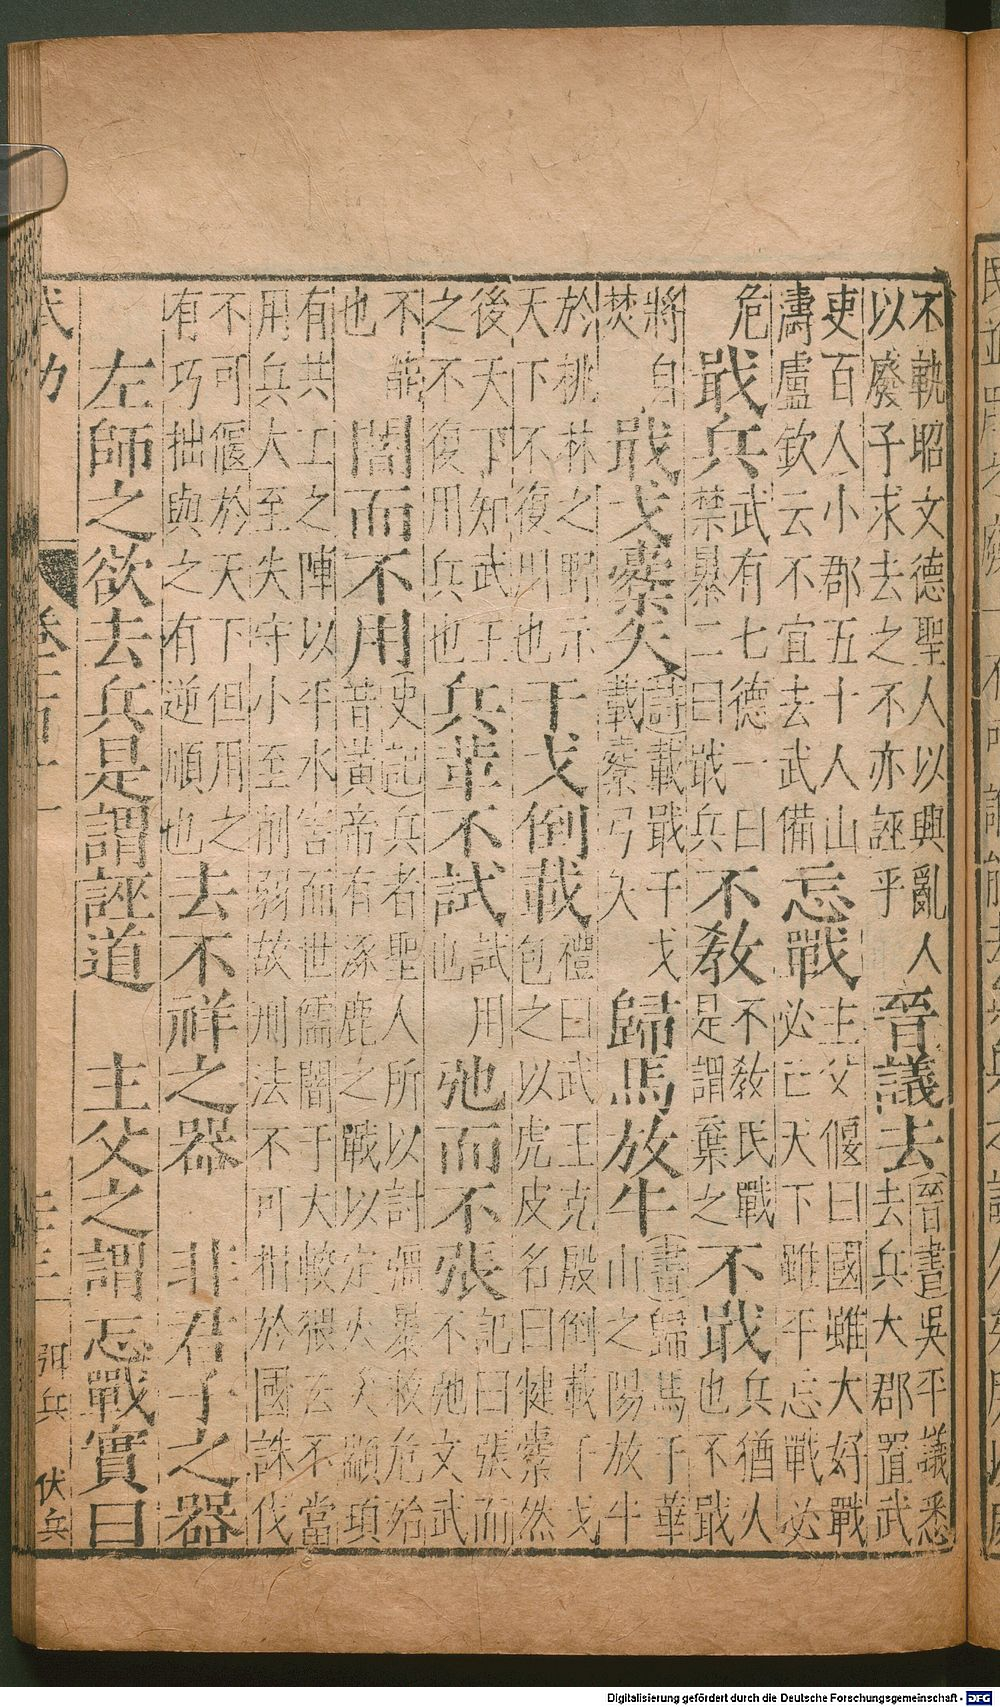 不軌昭文德聖人以興亂人
以廢子求去之不亦誣乎
晉議去
晉書吳平議悉
去兵大郡置武
吏百人小郡五十人山
濤盧欽云不宜去武備
忘戰
主父偃曰國雖大好戰
必亡天下雖平忘戰必
危
戢兵
武有七德一曰
禁暴二曰戢兵
不敎
不敎民戰
是謂棄之
不戢
兵猶人
也不戢
將自
焚
戢戈櫜矢
詩載戢干戈
載櫜弓久
歸馬放牛
書歸馬于華
山之陽放牛
於桃林之野示
天下不復用也
干戈倒載
禮曰武王克殷倒載干戈
包之以虎皮名曰健櫜然
後天下知武王
之不復用兵也
兵革不試
試用
也
弛而不張
記曰張而
不弛文武
不能
也
闇而不用
史記兵者聖人所以討彊暴救危殆
昔黃帝有涿鹿之戰以定火災顓頊
有共工之陣以平水害而世儒闇于大較猥云不當
用兵大至失守小至削弱故刑法不可捐於國誅伐
不可偃於天下但用之
有巧拙與之有逆順也
去不祥之器 非君子之器
左師之欲去兵是謂誣道 主父之謂忘戰實曰
武功 卷 弭兵 伏兵
Digitalisierung gefördert durch die Deutsche Forschungsgemeinschaft - DFG